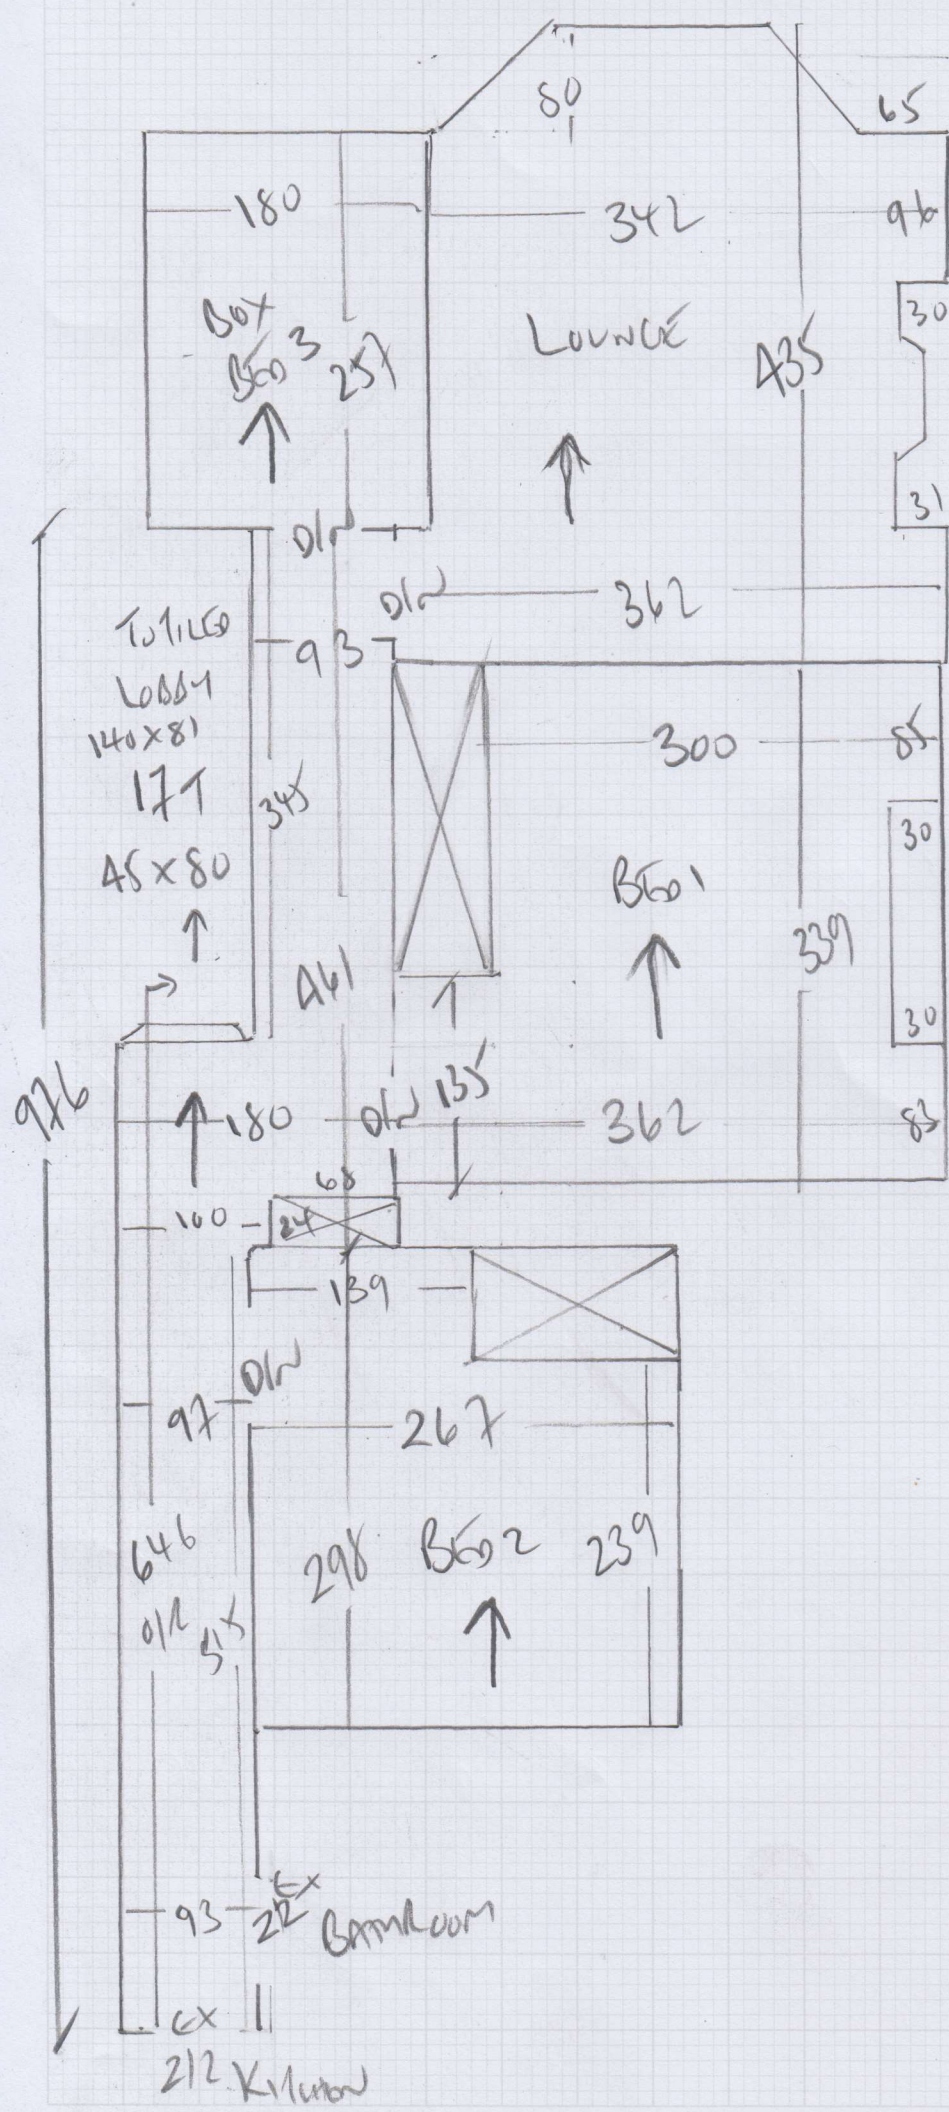 80
65
180
342
96
BOX
BED 3
257
LOUNGE
435
30
31
D/W
D/W
362
93
TO TILED
LOBBY
140 X 81
17T
45 X 80
345
300
85
30
BED 1
339
461
30
976
135
180
D/W
362
83
68
100
24
139
D/W
97
267
646
O/R
298
BED 2
239
93
EX
22
BATHROOM
EX
212 KITCHEN